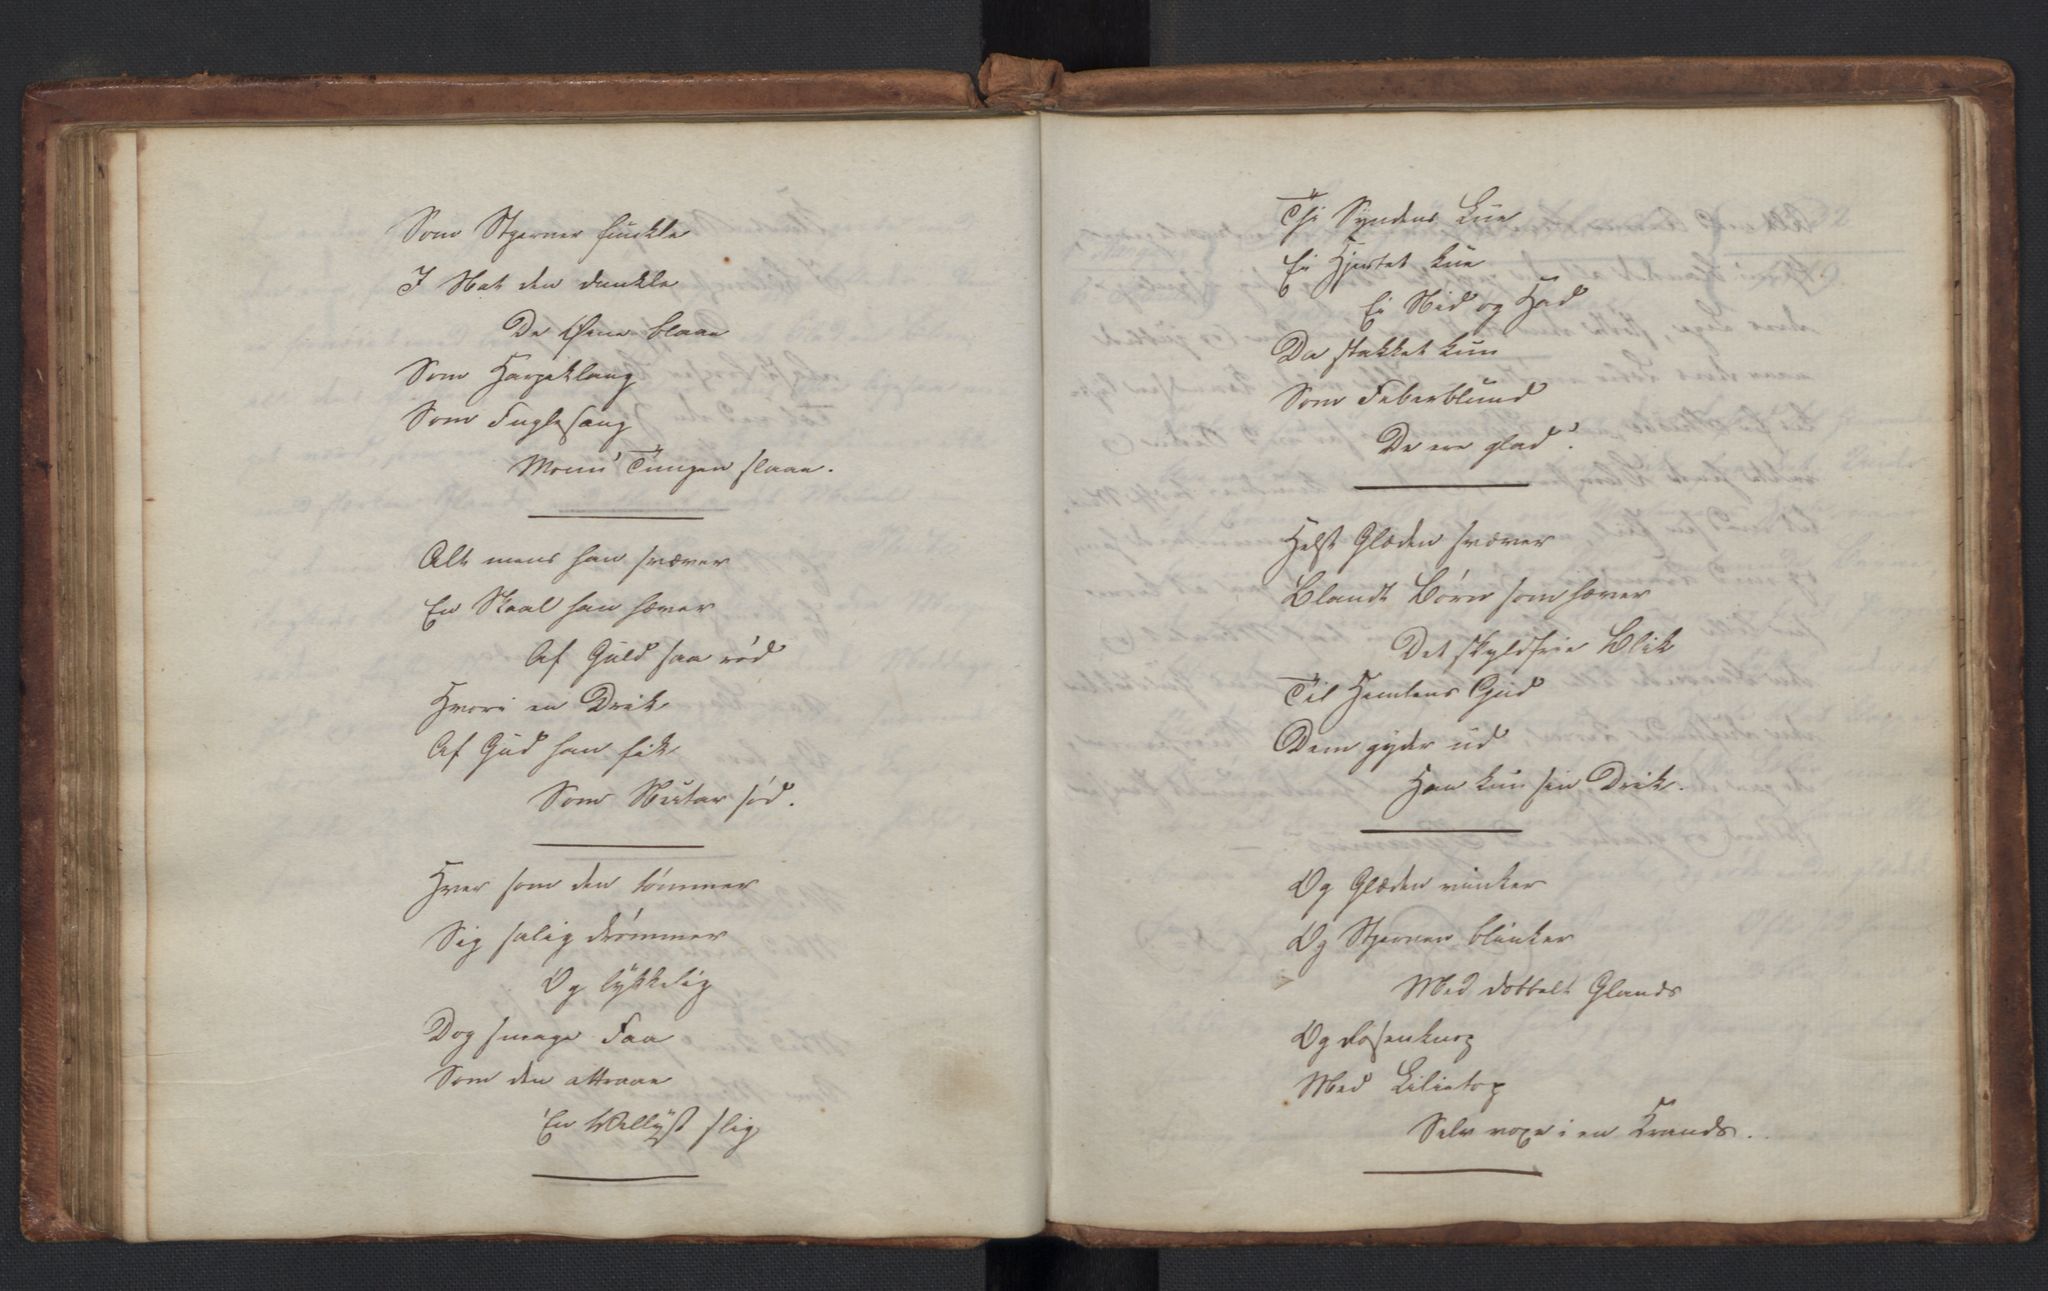 Som Stjerner funkle
I Nat den dunkle
De Øine blaae
Som Harpeklang
Som Fuglesang
Monn' Tungen slaae.
Alt mens han svæver
En Skaal han hæver
Af Guld saa rød
Hvori en Drik
Af Gud han fik
Som Nectar sød.
Hver som den tømmer
Sig salig drømmer
Og lykkelig
Dog smage Faa
Som den attraae
En Vellyst slig
Thi Syndens Lue
Ei Hjertet kue
Ei Nid og Had
Da stakket kun
Som Feberblund
De ere glad'.
Helst Glæden svæver
Blandt Børn som hæver
Det skyldfrie Blik
Til Himlens Gud
Dem gyder ud
Han kun sin Drik.
Og Glæden vinker
Og Stjernen blinker
Med dobbelt Glands
Og Rosenknop
Med Lilietop
Selv voxe i en Krands.